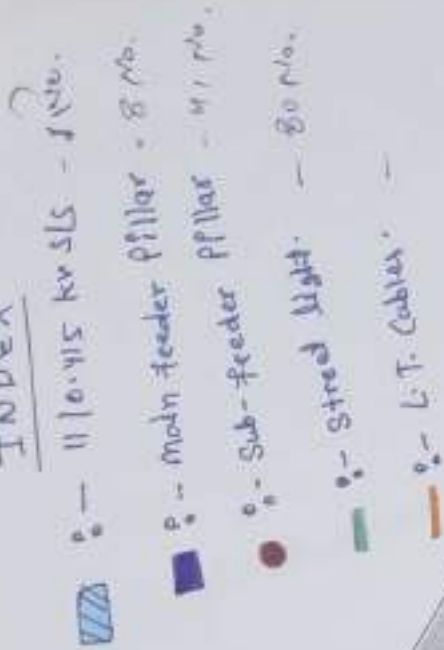 INDEX
:- 11/0.415 kv S/S - 1 No.
:- Main feeder pillar - 8 No.
:- Sub-feeder pillar - 41 No.
:- Street light. - 80 No.
:- L.T. Cables. -